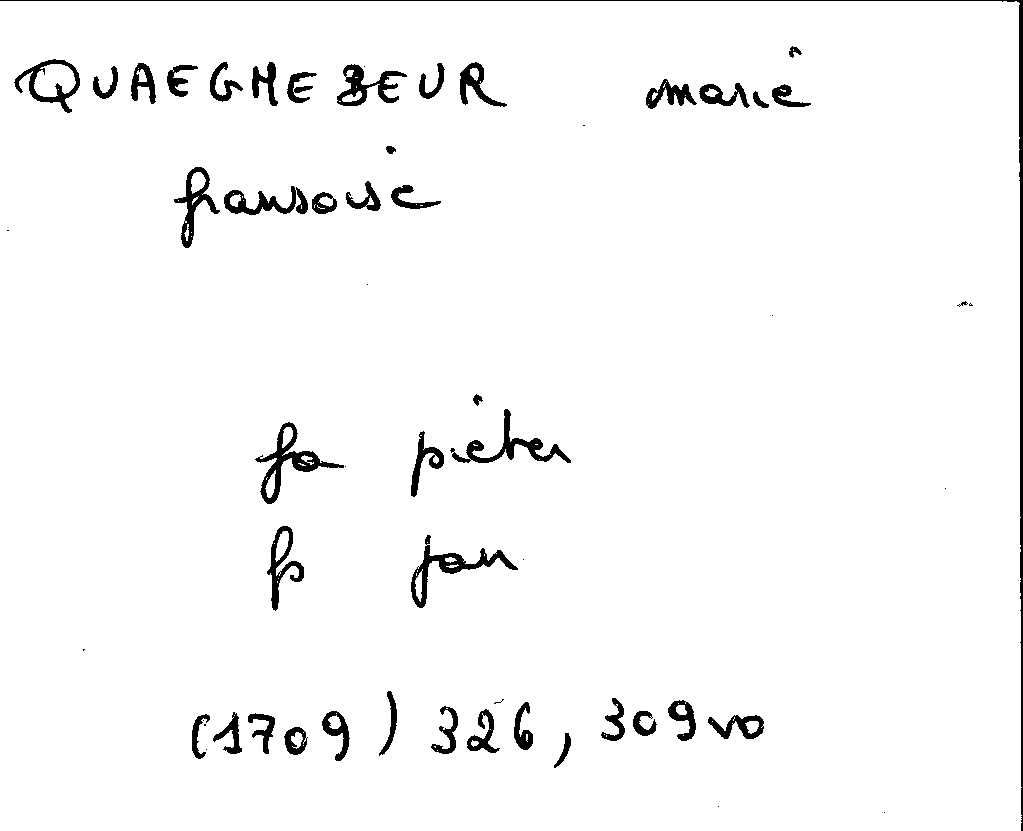 QUAEGHEBEUR marie
fransoise
fa pieter
fs jan
(1709) 326, 309 vo